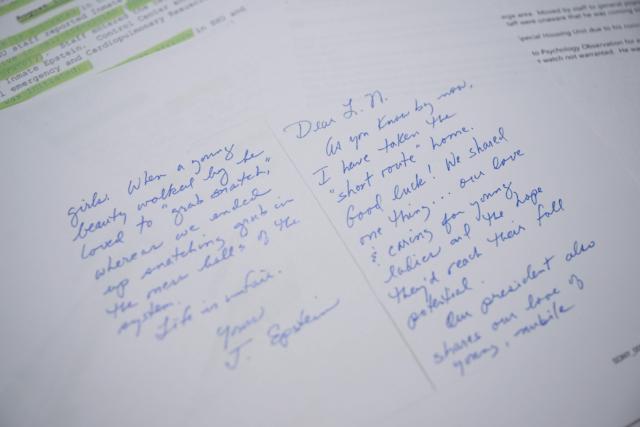 SHU staff reported Inmate
Staff entered the
Inmate Epstein. Control Center
emergency and Cardiopulmonary
in SHU and
Moved by staff to general
staff were unaware that he was coming
pecial Housing Unit due to his
to Psychology Observation for
watch not warranted.
Dear L.N.
As you know by now,
I have taken the
"short route" home.
Good luck! We shared
one thing... our love
& caring for young
ladies and the hope
they'd reach their full
potential.
Our president also
shares our love of
young, nubile
girls. When a young
beauty walked by he
loved to "grab snatch,"
whereas we ended
up snatching grub in
the mess halls of the
system.
Life is unfair.
Yours
J. Epstein